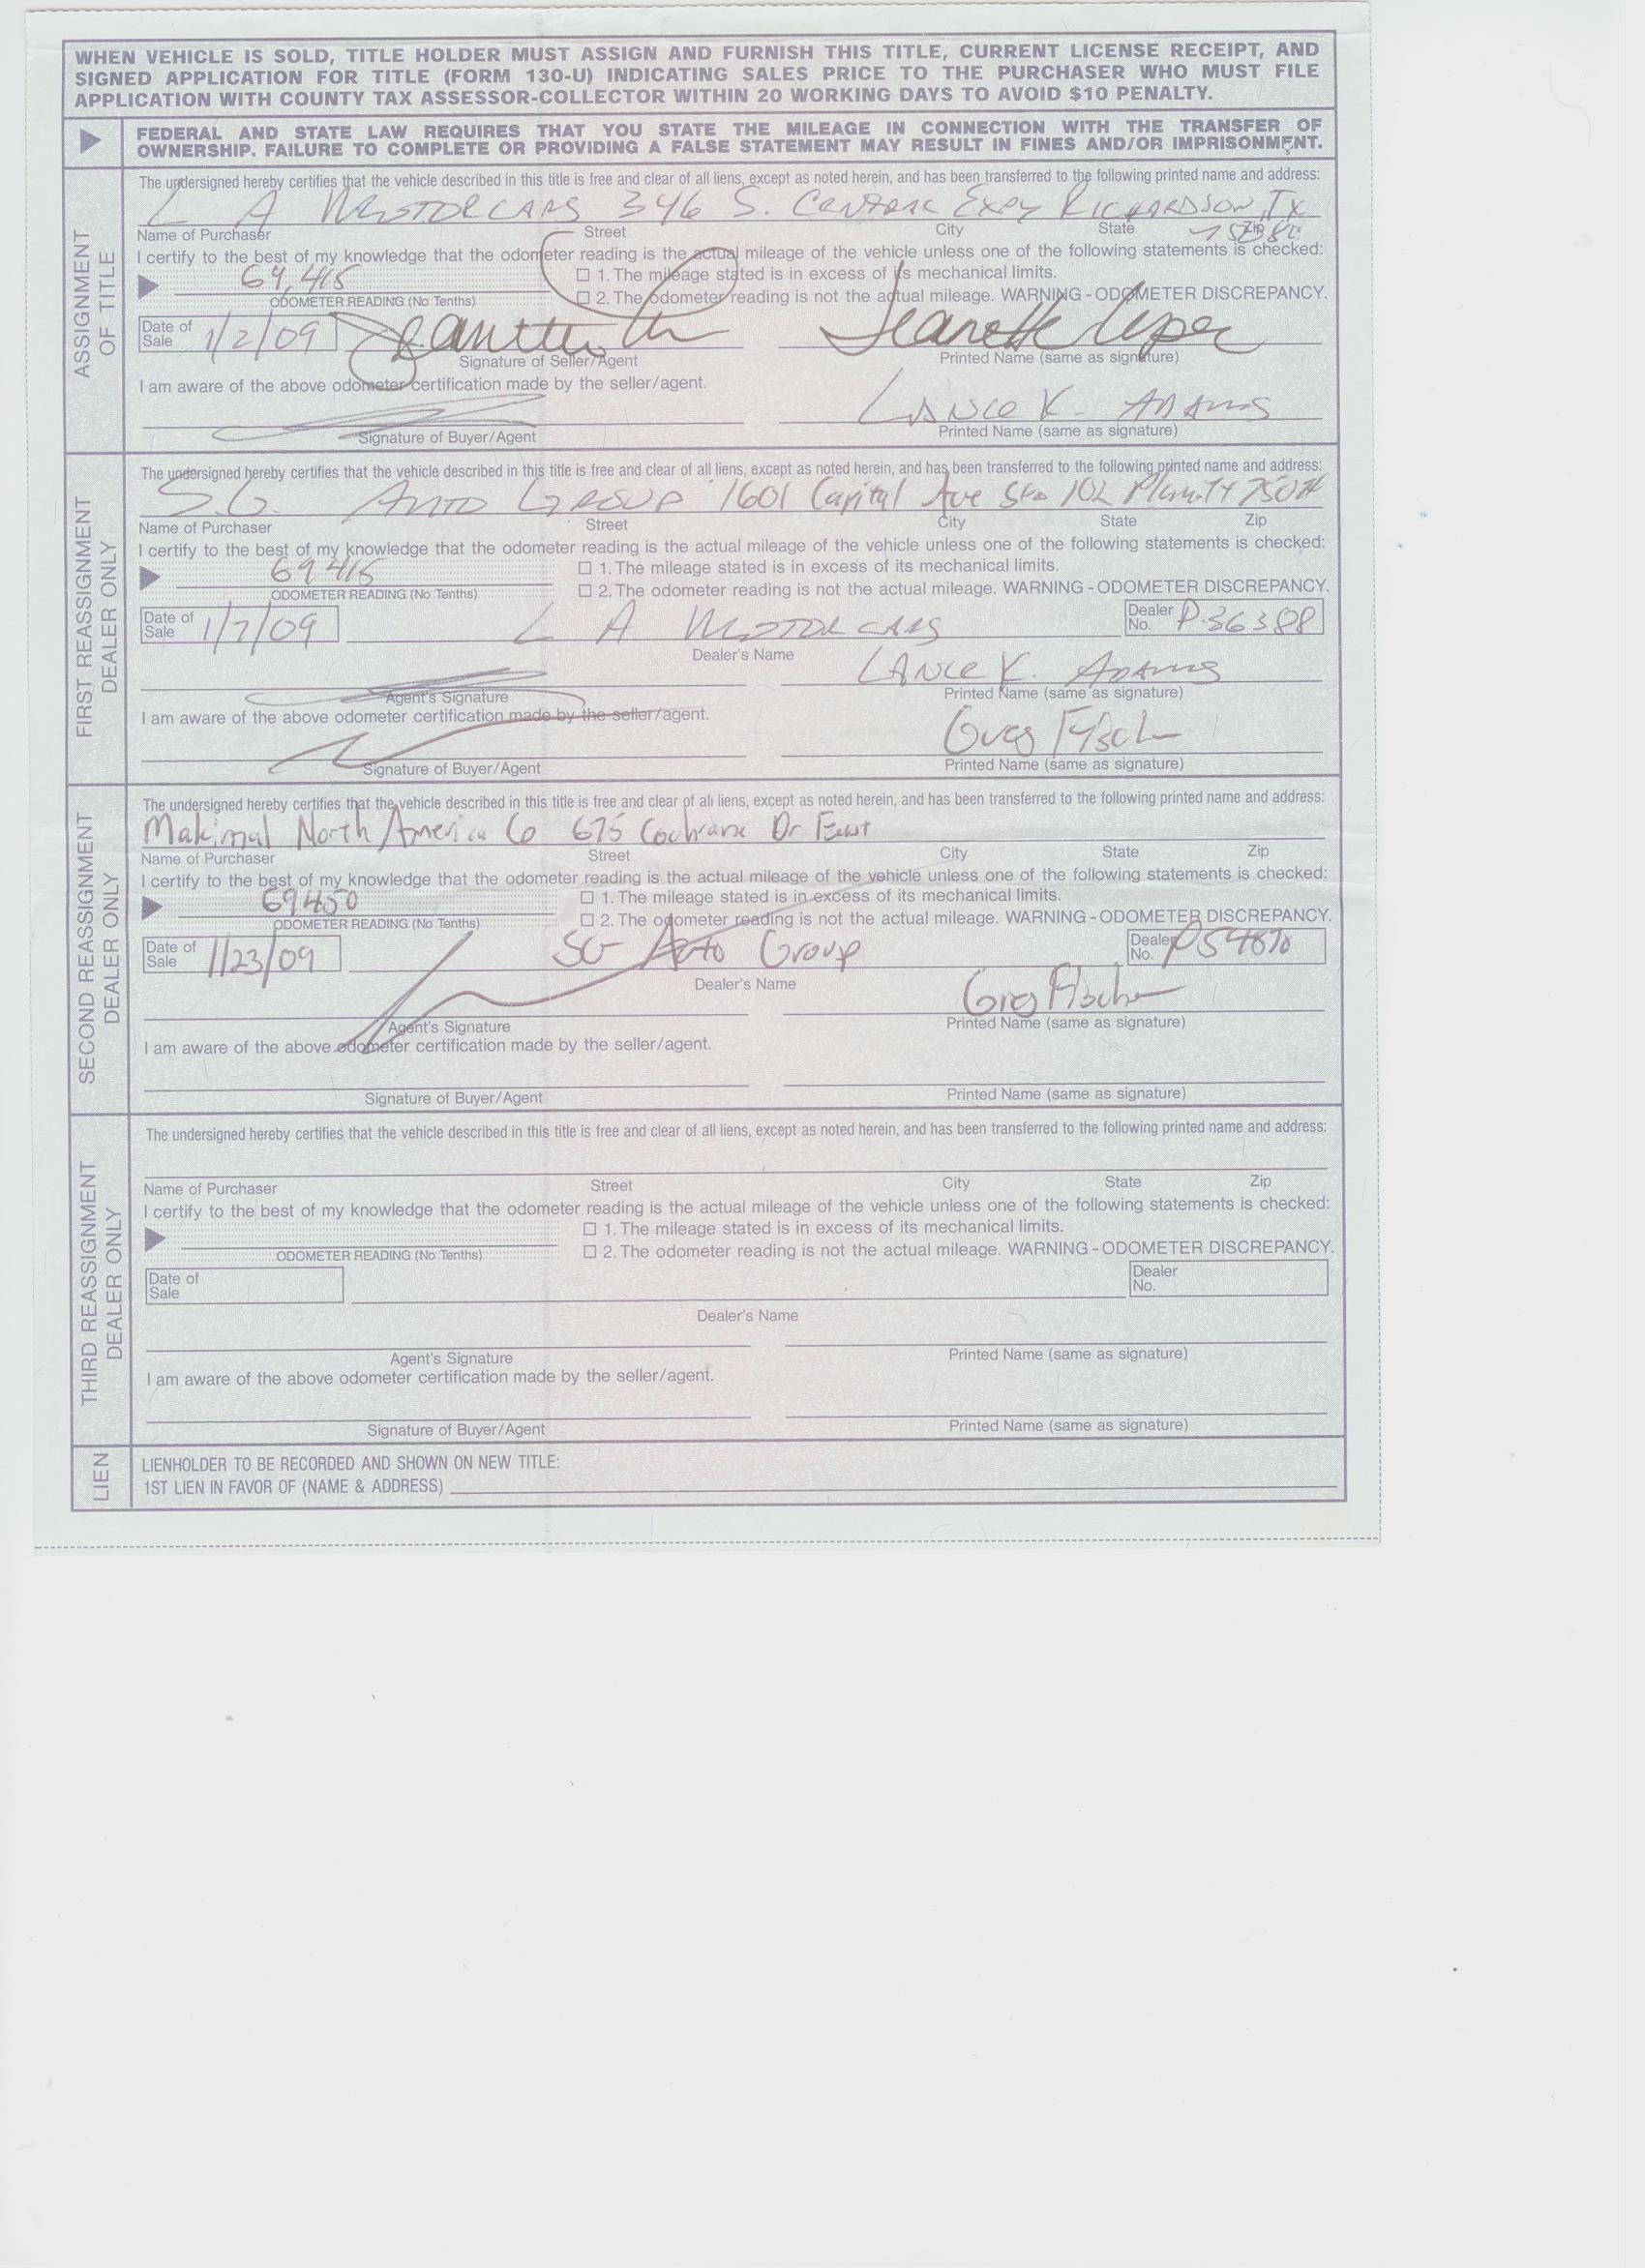 WHEN VEHICLE IS SOLD, TITLE HOLDER MUST ASSIGN AND FURNISH THIS TITLE, CURRENT LICENSE RECEIPT, AND
SIGNED APPLICATION FOR TITLE (FORM 130-U) INDICATING SALES PRICE TO THE PURCHASER WHO MUST FILE
APPLICATION WITH COUNTY TAX ASSESSOR-COLLECTOR WITHIN 20 WORKING DAYS TO AVOID $10 PENALTY.
FEDERAL AND STATE LAW REQUIRES THAT YOU STATE THE MILEAGE IN CONNECTION WITH THE TRANSFER OF
OWNERSHIP. FAILURE TO COMPLETE OR PROVIDING A FALSE STATEMENT MAY RESULT IN FINES AND/OR IMPRISONMENT.
ASSIGNMENT
OF TITLE
The undersigned hereby certifies that the vehicle described in this title is free and clear of all liens, except as noted herein, and has been transferred to the following printed name and address:
L A MOTORCARS 346 S. CENTRAL EXPY RICHARDSON, TX
75080
Name of Purchaser Street City State Zip
I certify to the best of my knowledge that the odometer reading is the actual mileage of the vehicle unless one of the following statements is checked:
69,415
☐ 1. The mileage stated is in excess of its mechanical limits.
ODOMETER READING (No Tenths)
☐ 2. The odometer reading is not the actual mileage. WARNING - ODOMETER DISCREPANCY.
Date of Sale 1/2/09
Jeanette
Signature of Seller/Agent Printed Name (same as signature)
I am aware of the above odometer certification made by the seller/agent.
LANCE K. ADAMS
Signature of Buyer/Agent Printed Name (same as signature)
FIRST REASSIGNMENT
DEALER ONLY
The undersigned hereby certifies that the vehicle described in this title is free and clear of all liens, except as noted herein, and has been transferred to the following printed name and address:
S.G. AUTO GROUP 1601 Capital Ave Ste 102 Plano Tx
Name of Purchaser Street City State Zip
I certify to the best of my knowledge that the odometer reading is the actual mileage of the vehicle unless one of the following statements is checked:
69415
☐ 1. The mileage stated is in excess of its mechanical limits.
ODOMETER READING (No Tenths)
☐ 2. The odometer reading is not the actual mileage. WARNING - ODOMETER DISCREPANCY.
Date of Sale 1/7/09 L A MOTORCARS Dealer No. P36388
Dealer's Name
LANCE K. ADAMS
Agent's Signature Printed Name (same as signature)
I am aware of the above odometer certification made by the seller/agent.
Greg Fisch
Signature of Buyer/Agent Printed Name (same as signature)
SECOND REASSIGNMENT
DEALER ONLY
The undersigned hereby certifies that the vehicle described in this title is free and clear of all liens, except as noted herein, and has been transferred to the following printed name and address:
Makimal North America Co 675 Cochrane Dr East
Name of Purchaser Street City State Zip
I certify to the best of my knowledge that the odometer reading is the actual mileage of the vehicle unless one of the following statements is checked:
69450
☐ 1. The mileage stated is in excess of its mechanical limits.
ODOMETER READING (No Tenths)
☐ 2. The odometer reading is not the actual mileage. WARNING - ODOMETER DISCREPANCY.
Date of Sale 1/23/09 SG Auto Group Dealer No.
Dealer's Name
Greg Fischer
Agent's Signature Printed Name (same as signature)
I am aware of the above odometer certification made by the seller/agent.
Signature of Buyer/Agent Printed Name (same as signature)
THIRD REASSIGNMENT
DEALER ONLY
The undersigned hereby certifies that the vehicle described in this title is free and clear of all liens, except as noted herein, and has been transferred to the following printed name and address:
Name of Purchaser Street City State Zip
I certify to the best of my knowledge that the odometer reading is the actual mileage of the vehicle unless one of the following statements is checked:
☐ 1. The mileage stated is in excess of its mechanical limits.
ODOMETER READING (No Tenths)
☐ 2. The odometer reading is not the actual mileage. WARNING - ODOMETER DISCREPANCY.
Date of Sale Dealer No.
Dealer's Name
Agent's Signature Printed Name (same as signature)
I am aware of the above odometer certification made by the seller/agent.
Signature of Buyer/Agent Printed Name (same as signature)
LIEN
LIENHOLDER TO BE RECORDED AND SHOWN ON NEW TITLE:
1ST LIEN IN FAVOR OF (NAME & ADDRESS)